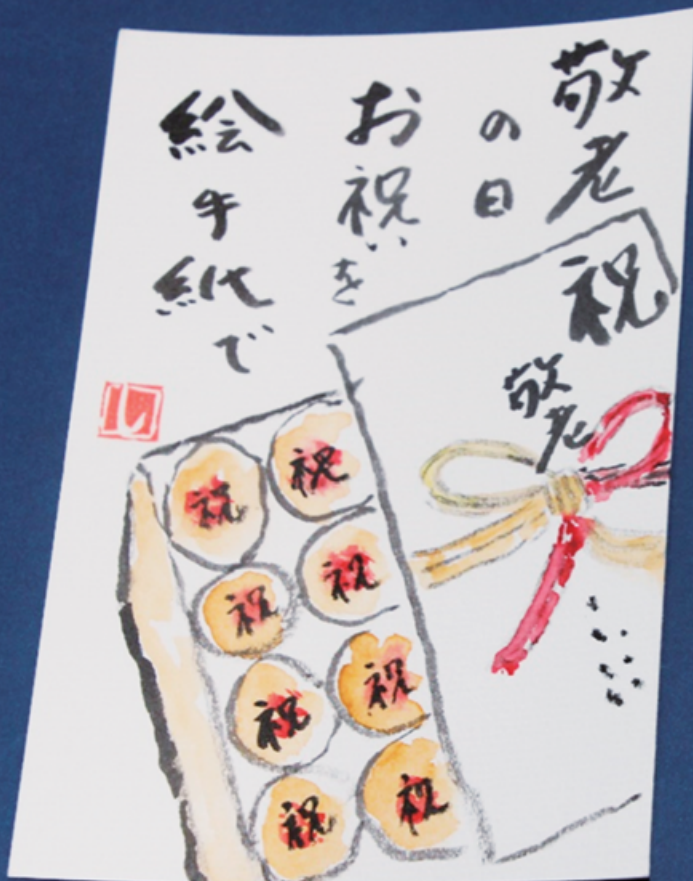 敬老
の日
お祝いを
絵手紙で
祝
敬老
祝
祝
祝
祝
祝
祝
祝
祝